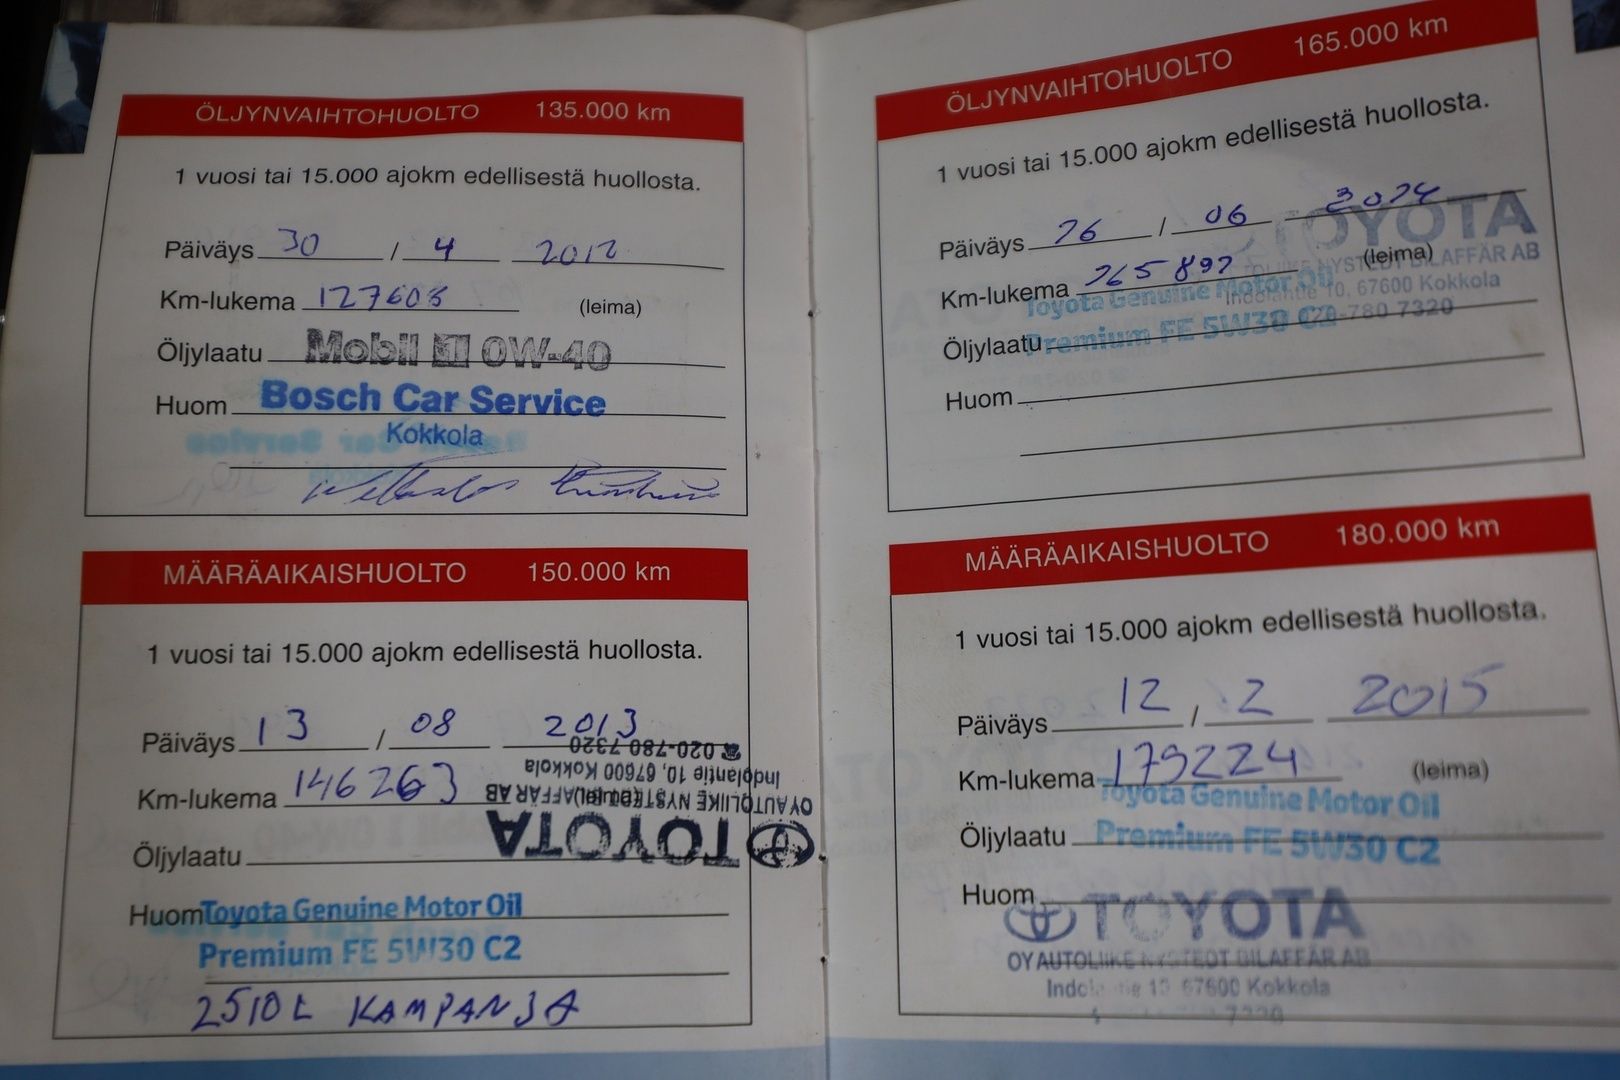 ÖLJYNVAIHTOHUOLTO 135.000 km
1 vuosi tai 15.000 ajokm edellisestä huollosta.
Päiväys 30 / 4 2012
Km-lukema 127603 (leima)
Öljylaatu Mobil 1 0W-40
Huom Bosch Car Service
Kokkola
MÄÄRÄAIKAISHUOLTO 150.000 km
1 vuosi tai 15.000 ajokm edellisestä huollosta.
Päiväys 13 / 08 2013
Km-lukema 146263 (leima)
Öljylaatu
TOYOTA
OY AUTOLIIKE NYSTEDT BILAFFÄR AB
Indolantie 10, 67600 Kokkola
☎ 020-780 7320
Huom Toyota Genuine Motor Oil
Premium FE 5W30 C2
KAMPANJA
ÖLJYNVAIHTOHUOLTO 165.000 km
1 vuosi tai 15.000 ajokm edellisestä huollosta.
Päiväys 26 / 06
TOYOTA
Km-lukema (leima)
OY AUTOLIIKE NYSTEDT BILAFFÄR AB
Indolantie 10, 67600 Kokkola
020-780 7320
Toyota Genuine Motor Oil
Öljylaatu Premium FE 5W30 C2
Huom
MÄÄRÄAIKAISHUOLTO 180.000 km
1 vuosi tai 15.000 ajokm edellisestä huollosta.
Päiväys 12 / 2 2015
Km-lukema 179224 (leima)
Toyota Genuine Motor Oil
Öljylaatu Premium FE 5W30 C2
Huom
TOYOTA
OY AUTOLIIKE NYSTEDT BILAFFÄR AB
Indolantie 10 67600 Kokkola
7320